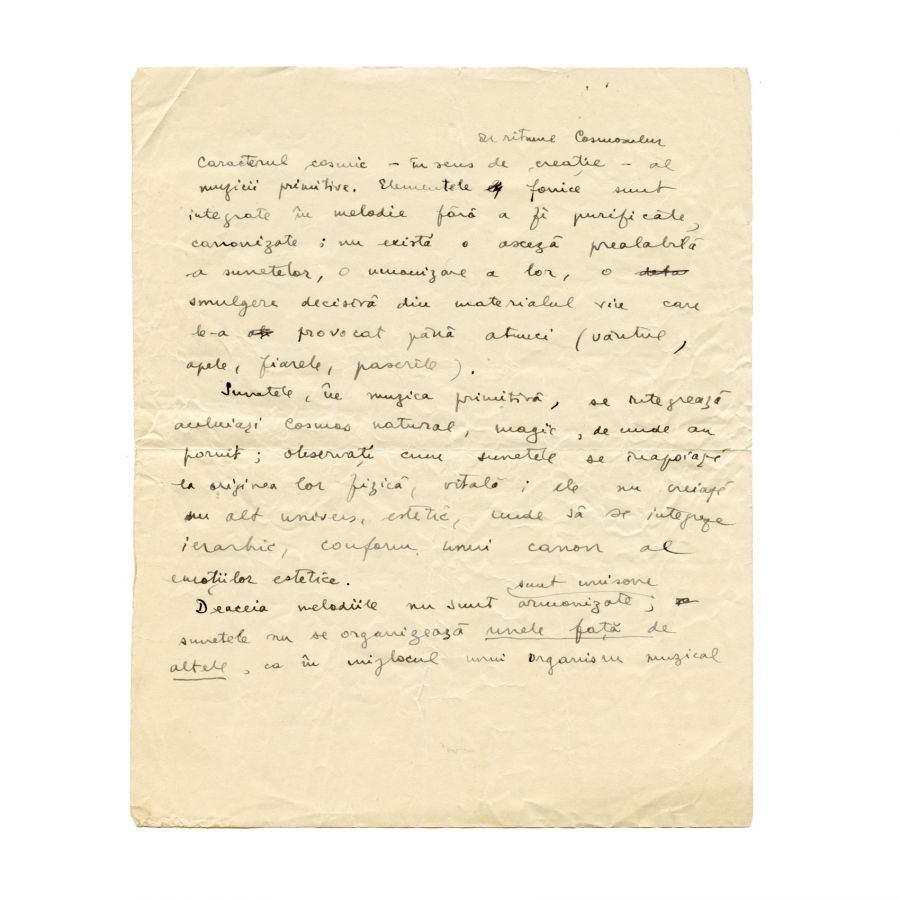 în ritmul Cosmosului
Caracterul cosmic – în sens de creație – al
muzicii primitive. Elementele fonice sunt
integrate în melodie fără a fi purificate,
canonizate; nu există o asceză prealabilă
a sunetelor, o umanizare a lor, o
smulgere decisivă din materialul viu care
le-a provocat până atunci (vântul,
apele, fiarele, pasările).
Sunetele, în muzica primitivă, se integrează
aceluiași Cosmos natural, magic, de unde au
pornit; observați cum sunetele se înapoiază
la originea lor fizică, vitală; ele nu creiază
un alt univers, estetic, unde să se integreze
ierarhic, conform unui canon al
emoțiilor estetice.
sunt unisone
Deaceia melodiile nu sunt armonizate;
sunetele nu se organizează unele față de
altele, ca în mijlocul unui organism muzical